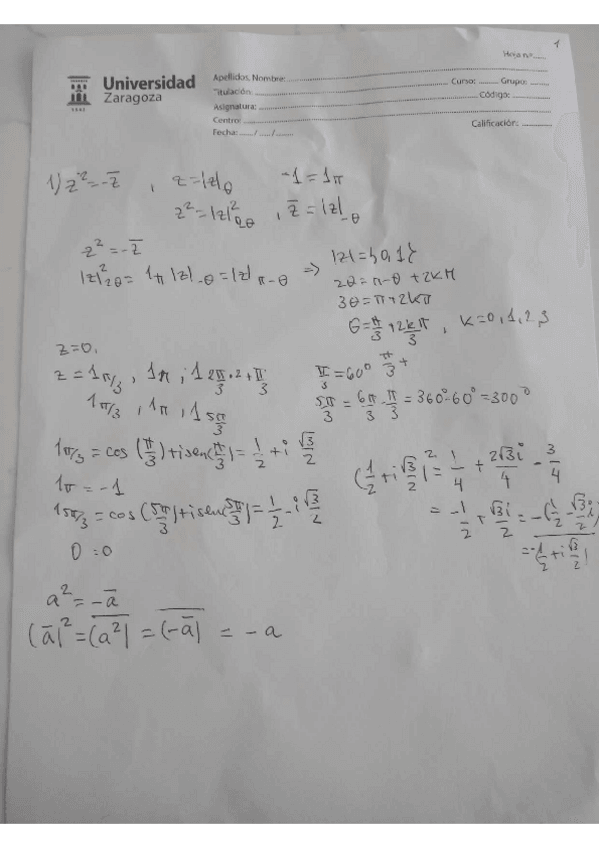 1
Hoja nº
Universidad
Zaragoza
Apellidos, Nombre:
Titulación: Curso: Grupo:
Asignatura: Código:
Centro:
Fecha: ..../..../.... Calificación:
1) z² = -z̅ , z = |z|_θ -1 = 1_π
z² = |z|²_2θ , z̅ = |z|_-θ
z² = -z̅
|z|²_2θ = 1_π |z|_-θ = |z|_π-θ ⇒ |z| = {0,1}
2θ = π-θ + 2kπ
3θ = π+2kπ
θ = π/3 + 2kπ/3 , k=0,1,2,3
z=0,
z = 1_π/3 , 1_π , 1_2π/3·2+π/3
π/3 = 60° π/3 +
1_π/3 , 1_π , 1_5π/3
5π/3 = 6π/3 - π/3 = 360°-60° = 300°
1_π/3 = cos(π/3)+isen(π/3) = 1/2 + i √3/2
1_π = -1
1_5π/3 = cos(5π/3)+isen(5π/3) = 1/2 - i √3/2
0 = 0
(1/2 + i √3/2)² = 1/4 + 2√3i/4 - 3/4
= -1/2 + √3i/2 = -(1/2 - √3i/2)
= -(1/2 + i √3/2)
a² = -a̅
(a̅)² = (a²) = (-a̅) = -a